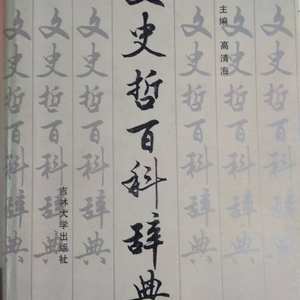 主编 高清海
文史哲百科辞典
吉林大学出版社
文史哲百科辞典
文史哲百科辞典
文史哲百科辞典
文史哲百科辞典
文史哲百科辞典
文史哲百科辞典